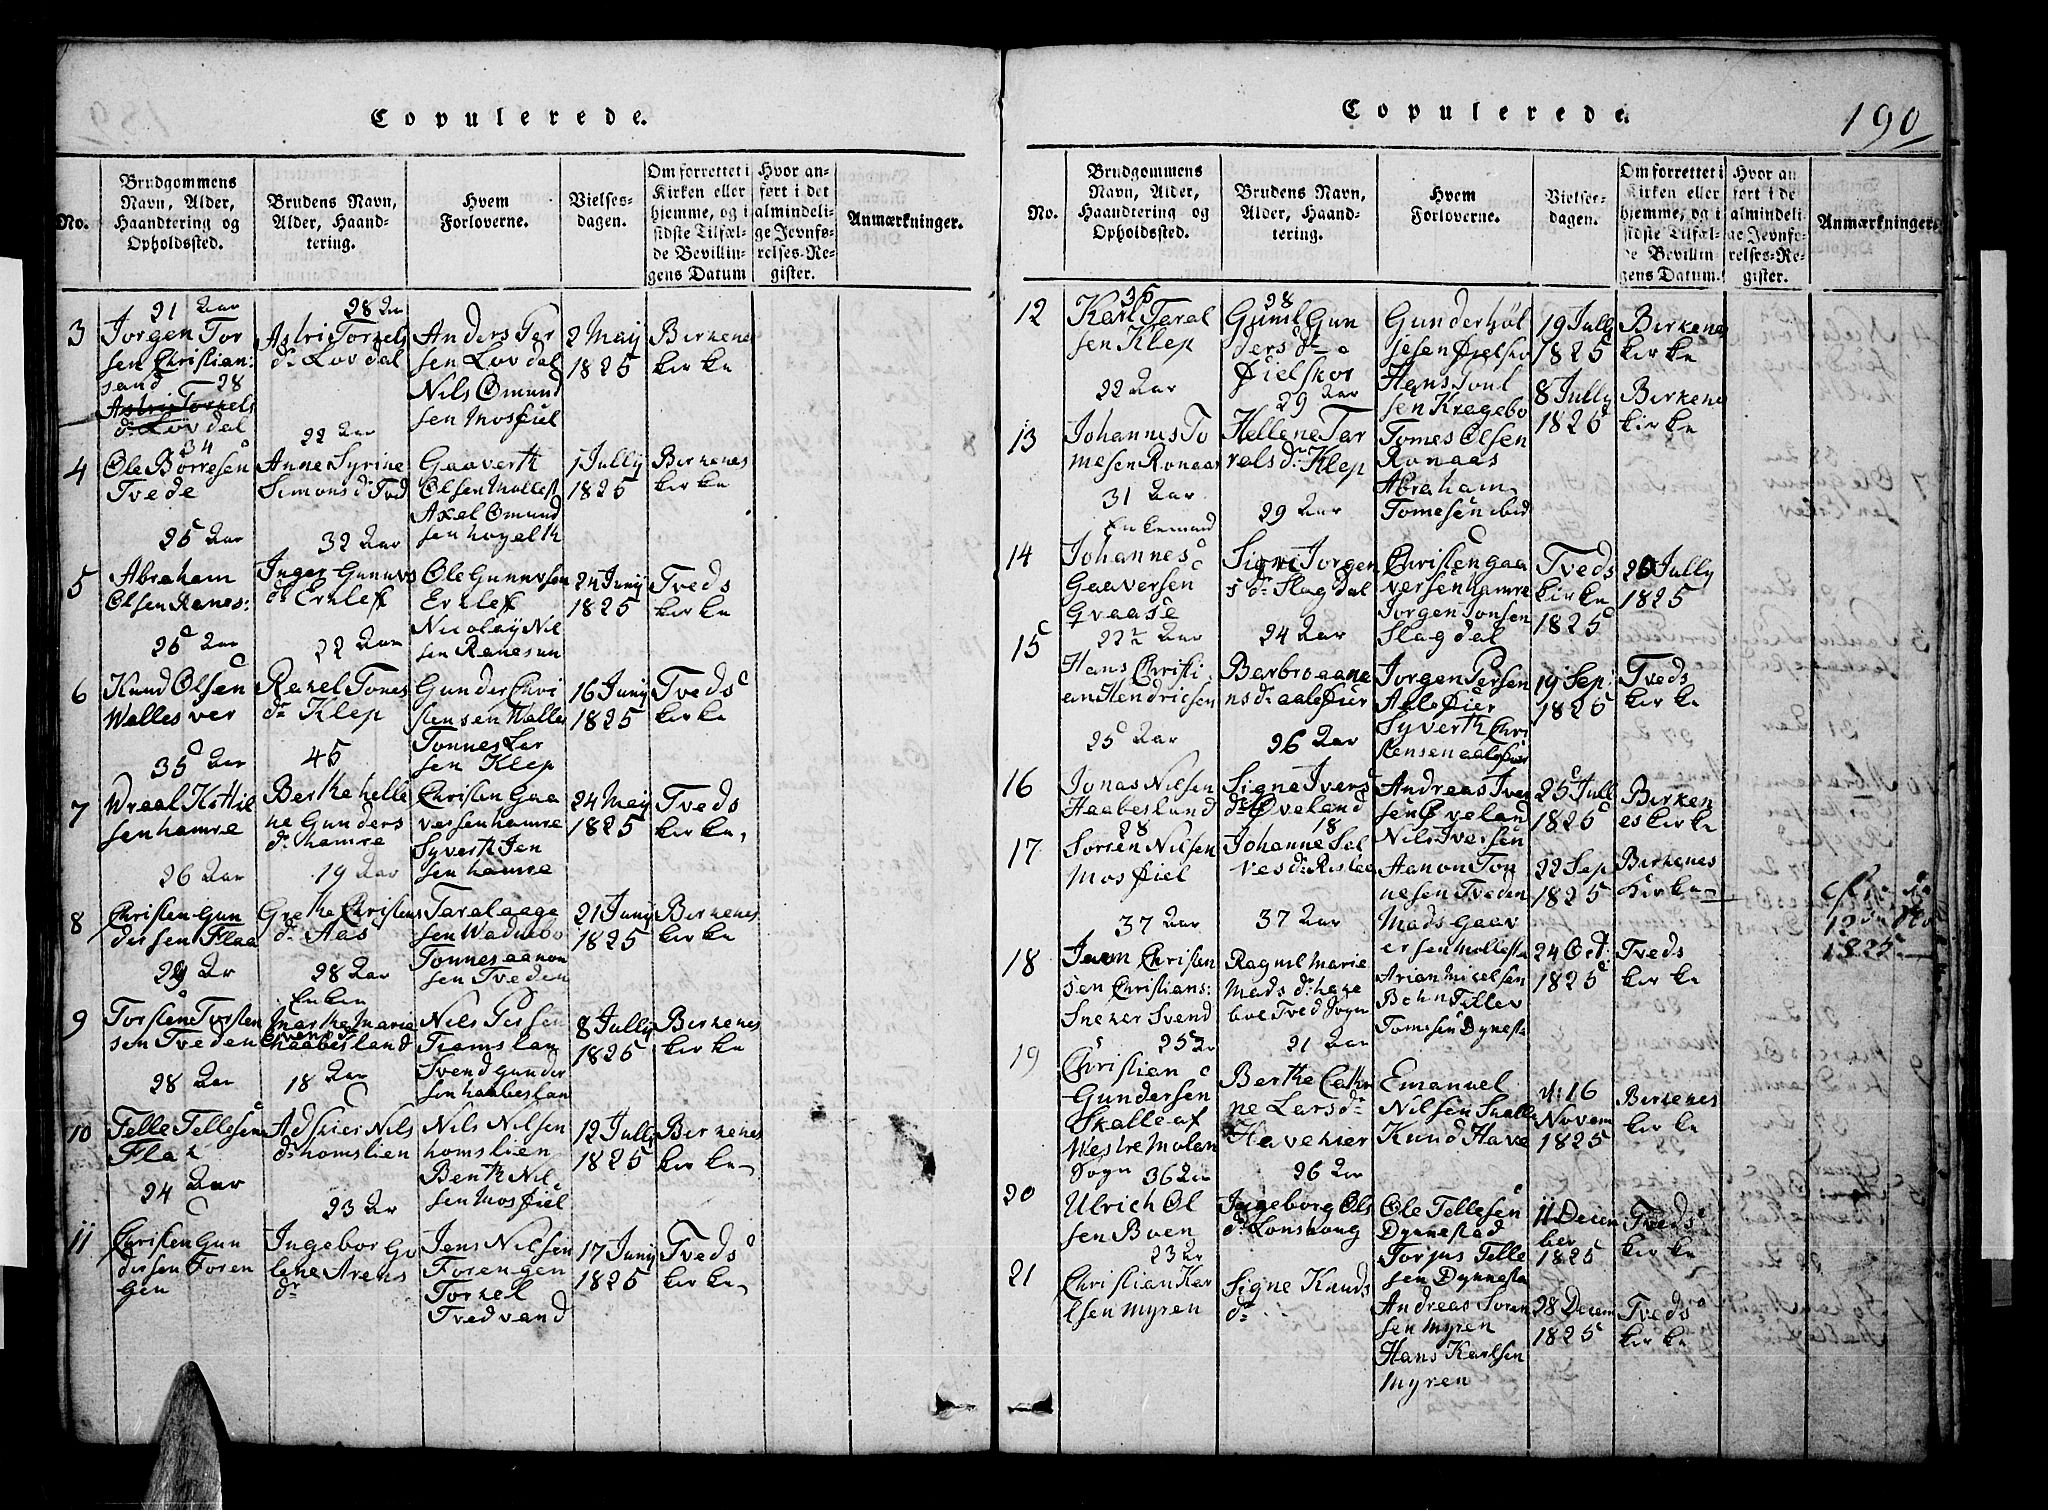 Copulerede.
No.
Brudgommens Navn, Alder, Haandtering og Opholdssted.
Brudens Navn, Alder, Haandtering.
Hvem Forloverne.
Vielsesdagen.
Om forrettet i Kirken eller hjemme, og i sidste Tilfælde Bevillingens Datum
Hvor anført i det almindelige Jevnførelses-Register.
Anmærkninger.
3
21 Aar
Jorgen Tor
sen Christian:
sand
28
Astri Torkels
dr Lovdal
28 Aar
Astri Torkels
dr Lovdal
Anders Ter
sen Lovdal
Nils Omund
sen Mosfiel
2 Maij
1825
Birkenes
kirke
4
34
Ole Borresen
Tvede
22 Aar
Anne Syrine
Simons dr Tved
Gaaverth
Olsen Mollest
Axel Omund
sen
1 Jully
1825
Birkenes
kirke
5
25 Aar
Abraham
Olsen Ranes:
32 Aar
Inger Gunuvs
dr Erklef
Ole Gunuvsen
Erklef
Nicolaij Nil
sen Ranesun
24 Junij
1825
Tveds
kirke
6
25 Aar
Knud Olsen
Walles ver
22 Aar
Rakel Tones
dr Klep
Gunder Chri
stensen Walles
Tonnes Lar
sen Klep
16 Junij
1825
Tveds
kirke
7
35 Aar
Wraal Kittil
sen hamre
45
Berthe helle
ne Gunders
dr hamre
Christen Gaa
versen hamre
Syverth Jen
sen hamre
24 Maij
1825
Tveds
kirke
8
26 Aar
Christen Gun
dersen Flaa
19 Aar
Grethe Christens
dr Aas
Taral aage
sen Wadnebo
Tonnes aanon
sen Tveden
21 Junij
1825
Birkenes
kirke
9
29 Ar
Torsten Torsten
sen Tveden
28 Aar
Enken
Marthe Marie
haabesland
Nils Persen
Tramslan
Svend gunder
sen haabeslan
8 Jully
1825
Birkenes
kirke
10
28 Aar
Telle Tellesen
Flak
18 Aar
Adspier Nils
dr homslien
Nils Nilsen
homslien
Benth Nil
sen Mosfiel
12 Jully
1825
Birkenes
kirke
11
24 Aar
Christen Gun
dersen Foren
gen
23 Ar
Ingebor Go
lene Arens
dr
Jens Nilsen
Forengen
Torkel
Tvedvand
17 Junij
1825
Tveds
kirke
Copulerede.
190
No.
Brudgommens Navn, Alder, Haandtering og Opholdssted.
Brudens Navn, Alder, Haandtering.
Hvem Forloverne.
Vielsesdagen.
Om forrettet i Kirken eller hjemme, og i sidste Tilfælde Bevillingens Datum.
Hvor anført i de almindelige Jevnførelses-Register.
Anmærkninger.
12
35
Karl Taral
sen Klep
28
Gunil Gun
ders dr
Fielskor
Gunder
Hans Toul
sen Kragebo
19 Jully
1825
Birkenes
kirke
13
22 Aar
Johannes To
mesen Ronaas
29 Aar
Hellene Tar
rels dr Klep
Tomes Olsen
Ronaas
Abraham
Tomesen ibid
8 Jully
1825
Birkenes
kirke
14
31 Aar
Enkemand
Johannes
Gaaversen
Qvaase
29 Aar
Signi Jorgen
s dr Slagdal
Christen gaa
versen hamre
Jorgen Jonsen
Slagdal
Tveds
kirke
1825
20 Jully
1825
15
22½ Aar
Hans Christi
an Hendricsen
24 Aar
Barbro aane
ns dr aalefier
Jorgen Persen
Alefier
Syverth Chri
stensen aalefier
19 Sep:
1825
Tveds
kirke
16
25 Aar
Jonas Nilsen
Haabesland
26 Aar
Signe Ivers
dr Øveland
Andreas Iver
sen Øveland
Nils Iversen
25 Jull
1825
Birken
es kirke
17
28
Sorren Nilsen
Mosfiel
18
Johanne Sel
ves dr Rislaa
Aanon Ton
nesen Tveden
Mads Gaav
ersen Mollesta
22 Sep
1825
Birkenes
kirke
12 Nov
1825
18
37 Aar
Christen
sen Christians:
Sneker Svend
37 Aar
Ragnil Marie
Mads dr hane
boe Tved Sogn
Arian Micelsen
Bohn Tellev
Tomesen Dynesta
24 Oct:
1825
Tveds
kirke
19
25 Ar
Christien
Gundersen
Skalle af
Westre Molan
Sogn
21 Aar
Berthe Cathr
ne Lars dr
Havehier
Emanuel
Nilsen Snalle
Knud Have
d: 16
Novem
1825
Birkenes
kirke
20
36 Aar
Ulrich Ol
sen Boen
26 Ar
Ingeborg Ols
dr Lonskoug
Ole Tellesen
Dynnestad
Torjus Telle
sen Dynnesta
11 Decem
ber
1825
Tveds
kirke
21
23 Ar
Christian Kar
lsen Myren
Signe Knuds
dr
Andreas Soren
sen Myren
Hans Karlsen
Myren
28 Decem
1825
Tveds
kirke